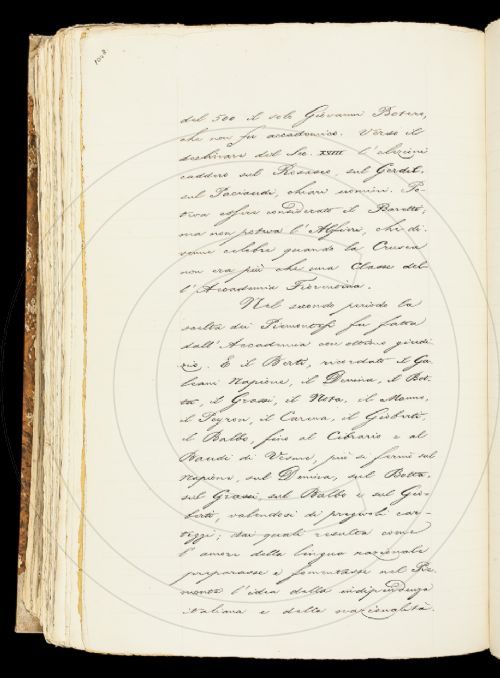 1048.
del 500 il solo Giovanni Botero,
che non fu accademico. Verso il
declinare del Sec. XVIII l'elezioni
caddero sul Rosasco, sul Gerdil,
sul Paciaudi, chiari uomini. Po-
teva essere considerato il Baretti;
ma non poteva l'Alfieri, che di-
venne celebre quando la Crusca
non era più che una Classe del
l'Accademia Fiorentina.
Nel secondo periodo la
scelta dei Piemontesi fu fatta
dall'Accademia con ottimo giudi-
zio. E il Berti, ricordati il Ga-
leani Napione, il Denina, il Bot-
ta, il Grassi, il Nota, il Manno,
il Peyron, il Carena, il Gioberti,
il Balbo, fino al Cibrario e al
Baudi di Vesme, più si fermò sul
Napione, sul Denina, sul Botta,
sul Grassi, sul Balbo e sul Gio-
berti, valendosi di pregevoli car-
teggi; dai quali risulta come
l'amore della lingua nazionale
preparasse e fomentasse nel Pie-
monte l'idea della indipendenza
italiana e della nazionalità.